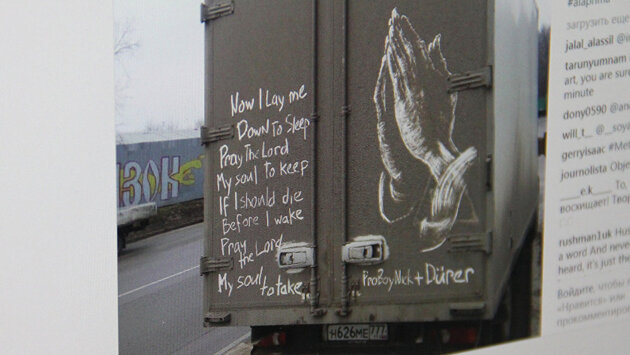 #alaprima
загрузить еще
jalal_alassil @
tarunyumnam
art, you are sure
minute
dony0590 @
will_t__ @_soy
gerryisaac #Met
journolista Obje
___e.k____ То,
восхищает! Твор
rushman1uk Hus
a word And never
heard, it's just the
Войдите, чтобы
«Нравится» или
прокомментиро
Now I Lay me
Down To Sleep
Pray The Lord
My Soul To keep
If I should die
Before I wake
Pray
the Lord
My soul
to take
ProBoyNick + Dürer
ЗОН
Н626МЕ 777